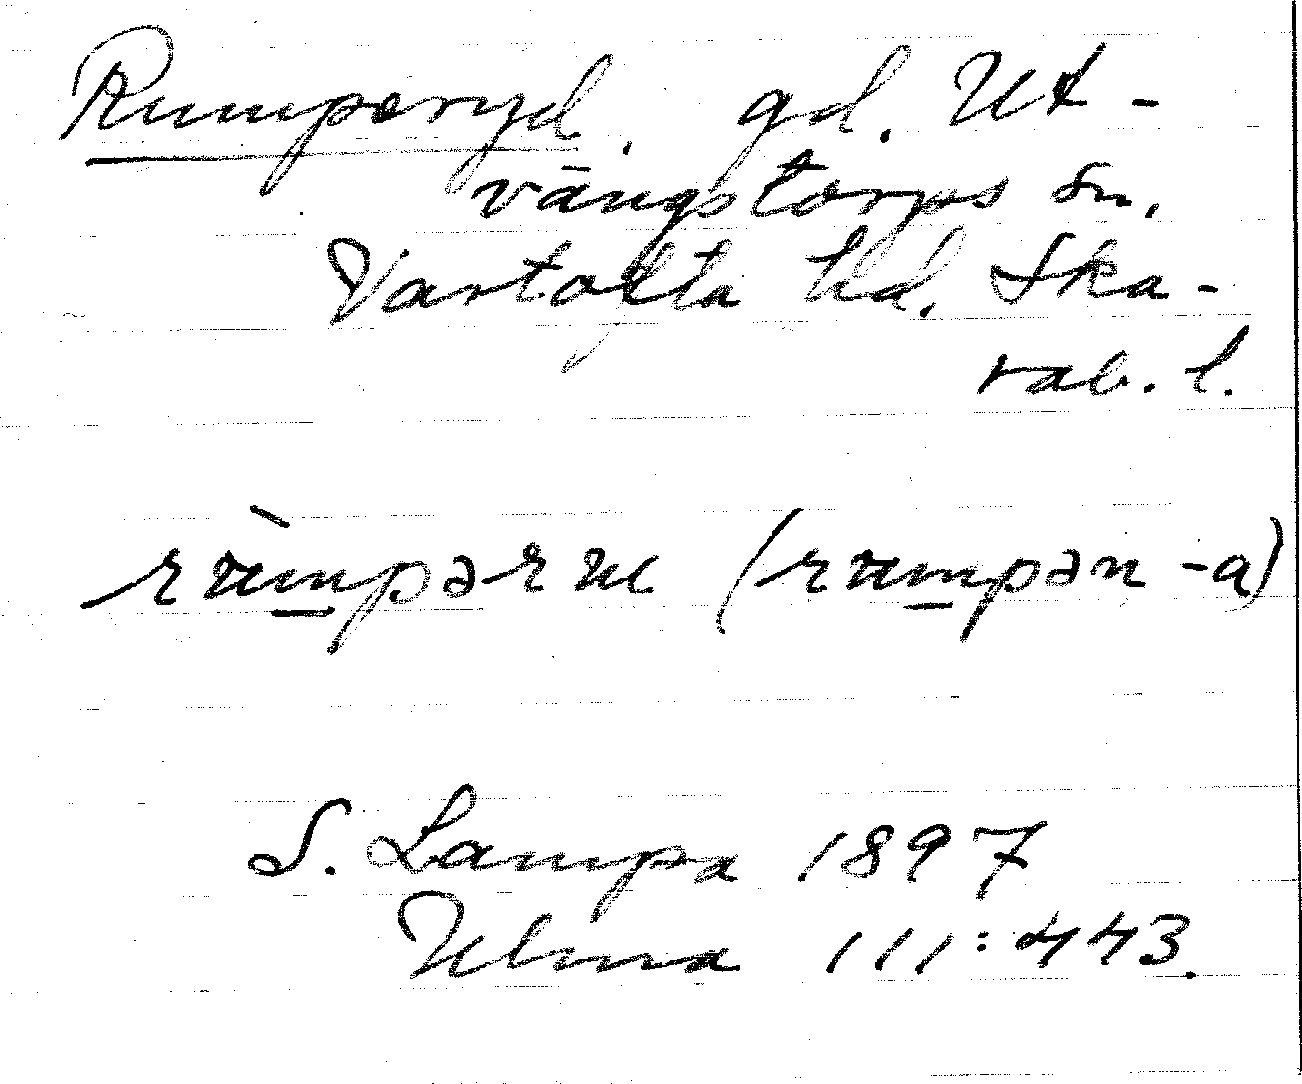 Rumperyd, gd. Ut-
vängstorps sn.
Vartofta hd. Ska-
rab. l.
rùmpərn (rumpən -a)
S. Lampa 1897
Ulma 111:443.